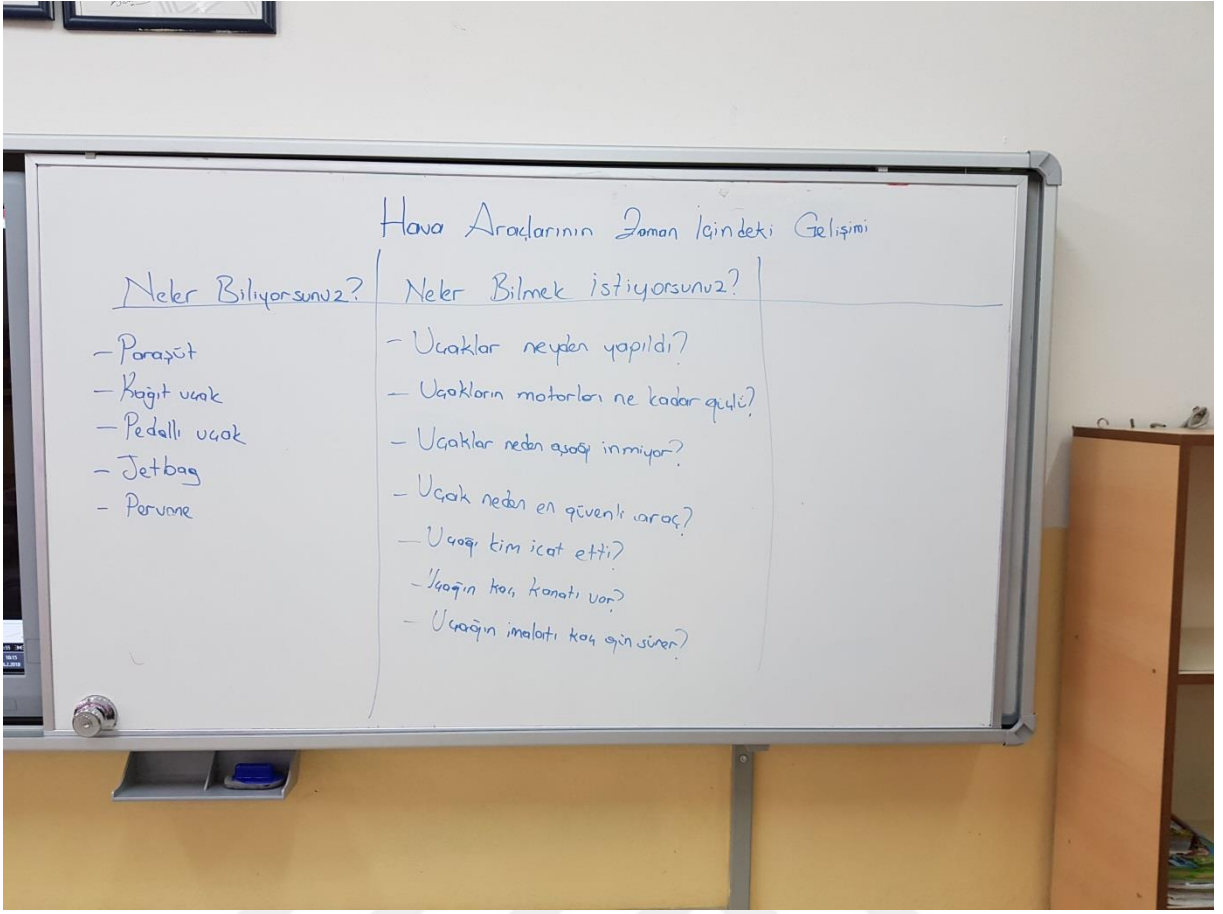 Hava Araçlarının Zaman İçindeki Gelişimi
Neler Biliyorsunuz?
- Paraşüt
- Kağıt uçak
- Pedallı uçak
- Jetbag
- Pervane
Neler Bilmek istiyorsunuz?
- Uçaklar neyden yapıldı?
- Uçakların motorları ne kadar güçlü?
- Uçaklar neden aşağı inmiyor?
- Uçak neden en güvenli araç?
- Uçağı kim icat etti?
- Uçağın kaç kanatı var?
- Uçağın imalatı kaç gün sürer?